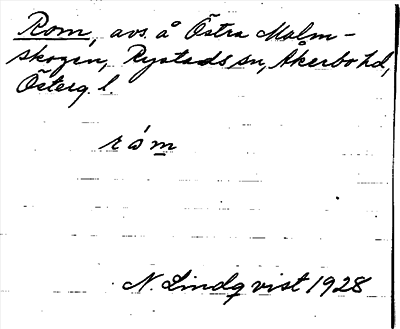 Rom, avs. å Östra Malm-
skogen, Rystads sn, Åkerbo hd,
Österg. l.
róm
N. Lindqvist 1928